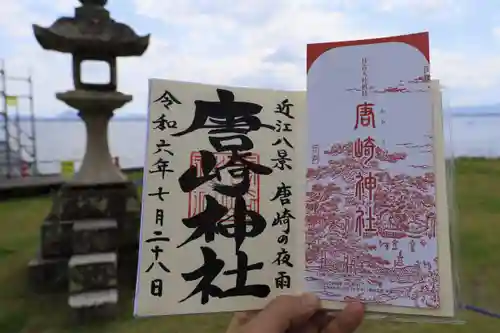 近江八景 唐崎の夜雨
唐崎神社
令和六年七月二十八日
唐崎神社